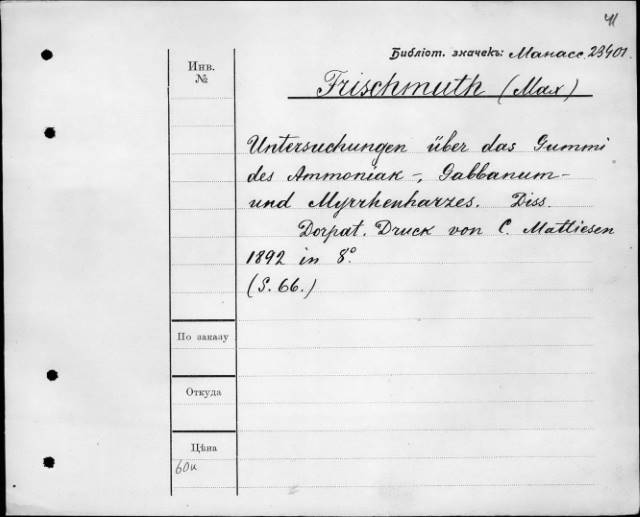 41
Библіот. значекъ: Манасс. 23401.
Инв.
№
Frischmuth (Max)
Untersuchungen über das Gummi
des Ammoniak-, Galbanum-
und Myrrhenharzes. Diss.
Dorpat. Druck von C. Mattiesen
1892 in 8°
(S. 66.)
По заказу
Откуда
Цѣна
60к